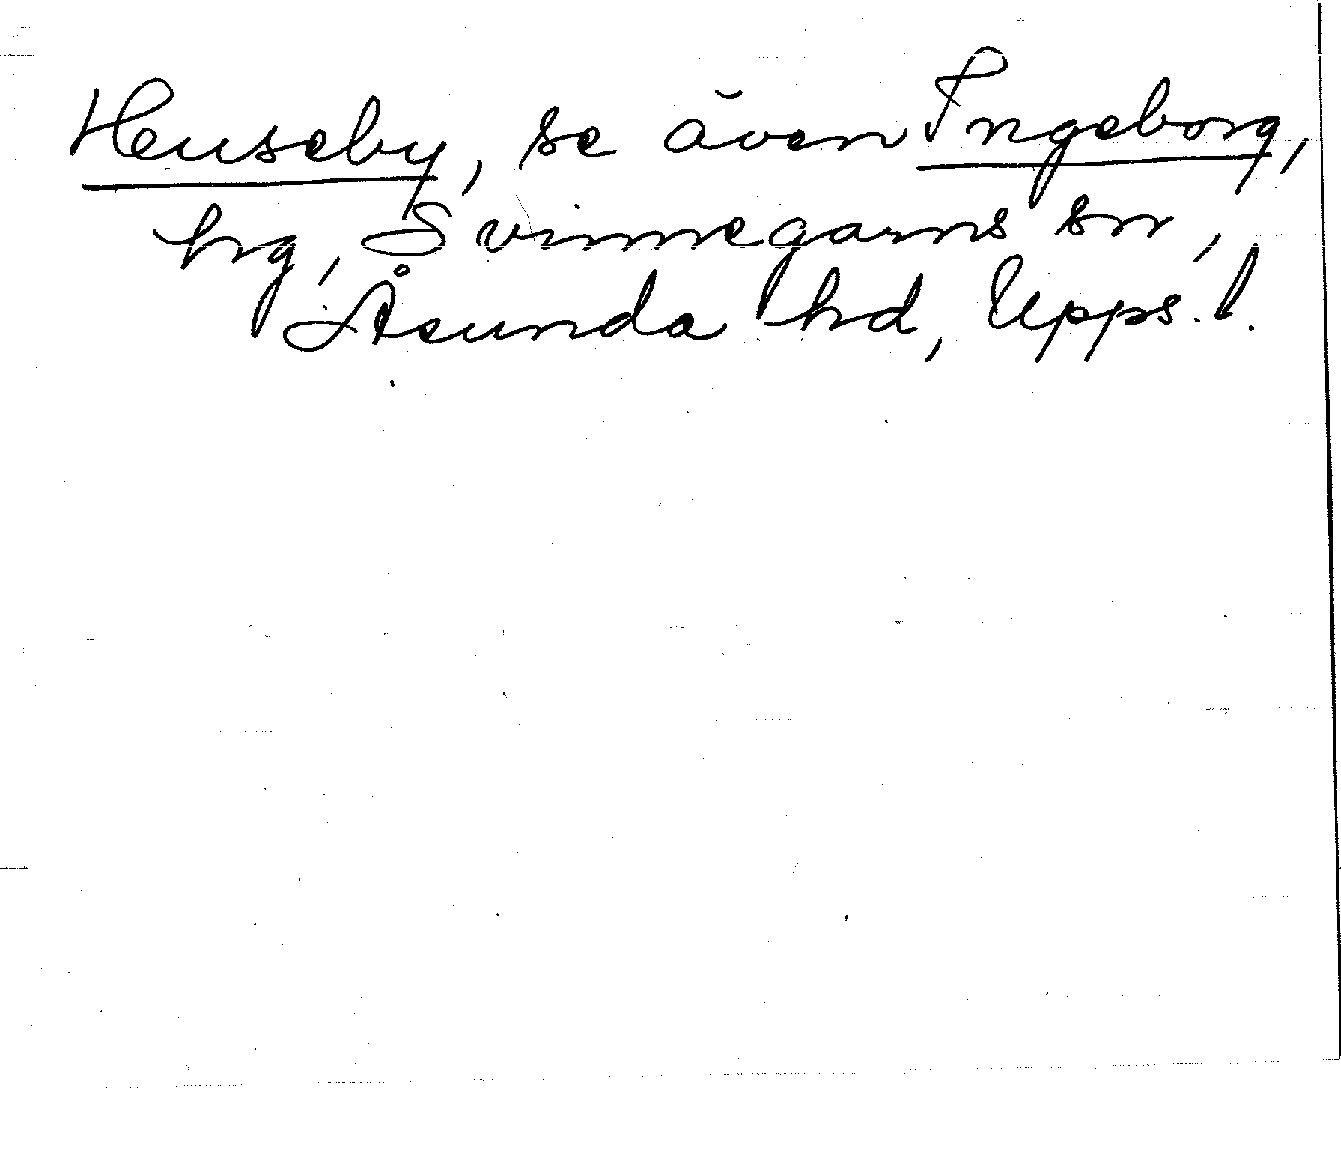 Heuseby, se även Ingeborg,
hrg, Svinnegarns sn,
Åsunda hd, Upps. l.